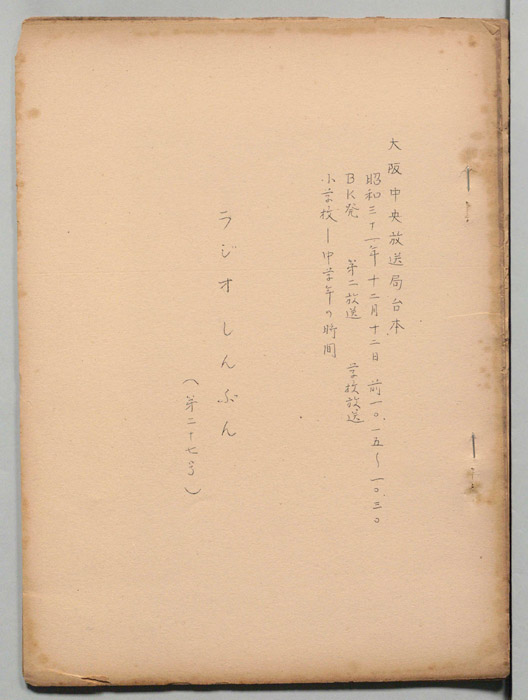 大阪中央放送局台本
昭和三十一年十二月十二日 前一〇.一五〜一〇.三〇
BK発 第二放送 学校放送
小学校ー中学年の時間
ラジオしんぶん
(第二十七号)